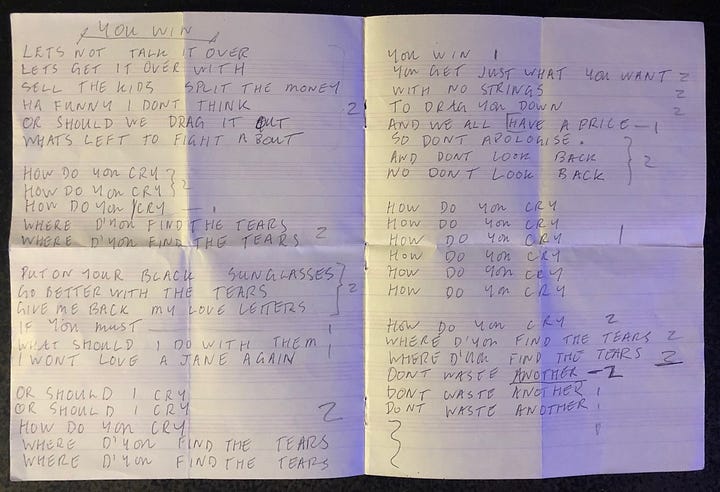 YOU WIN
LETS NOT TALK IT OVER
LETS GET IT OVER WITH
SELL THE KIDS SPLIT THE MONEY
HA FUNNY I DONT THINK 2
OR SHOULD WE DRAG IT OUT
WHATS LEFT TO FIGHT ABOUT
HOW DO YOU CRY
HOW DO YOU CRY } 2
HOW DO YOU CRY — 1
WHERE D'YOU FIND THE TEARS
WHERE D'YOU FIND THE TEARS 2
PUT ON YOUR BLACK SUNGLASSES
GO BETTER WITH THE TEARS } 2
GIVE ME BACK MY LOVE LETTERS
IF YOU MUST — 1
WHAT SHOULD I DO WITH THEM 1
I WONT LOVE A JANE AGAIN 1
OR SHOULD I CRY
OR SHOULD I CRY 2
HOW DO YOU CRY
WHERE D'YOU FIND THE TEARS
WHERE D'YOU FIND THE TEARS
YOU WIN 1
YOU GET JUST WHAT YOU WANT 2
WITH NO STRINGS 2
TO DRAG YOU DOWN 2
AND WE ALL HAVE A PRICE — 1
SO DONT APOLOGISE.
AND DONT LOOK BACK } 2
NO DONT LOOK BACK
HOW DO YOU CRY
HOW DO YOU CRY
HOW DO YOU CRY 1
HOW DO YOU CRY
HOW DO YOU CRY
HOW DO YOU CRY
HOW DO YOU CRY 2
WHERE D'YOU FIND THE TEARS 2
WHERE D'YOU FIND THE TEARS 2
DONT WASTE ANOTHER — 2
DONT WASTE ANOTHER 1
DONT WASTE ANOTHER 1
}